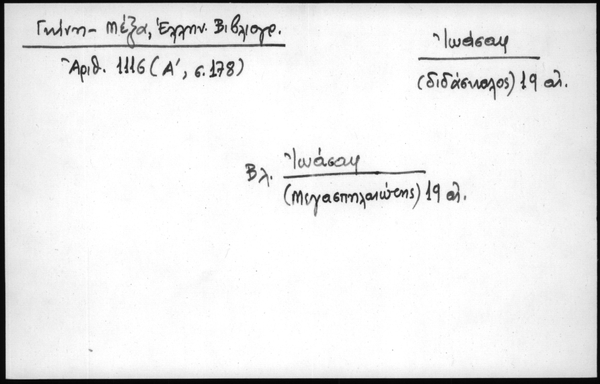 Γκίνη - Μέξα, Ἑλλην. Βιβλιογρ.
Ἀριθ. 1116 (Α´, σ. 178)
Ἰωάσαφ
(διδάσκαλος) 19 αἰ.
Βλ. Ἰωάσαφ
(Μεγασπηλαιώτης) 19 αἰ.